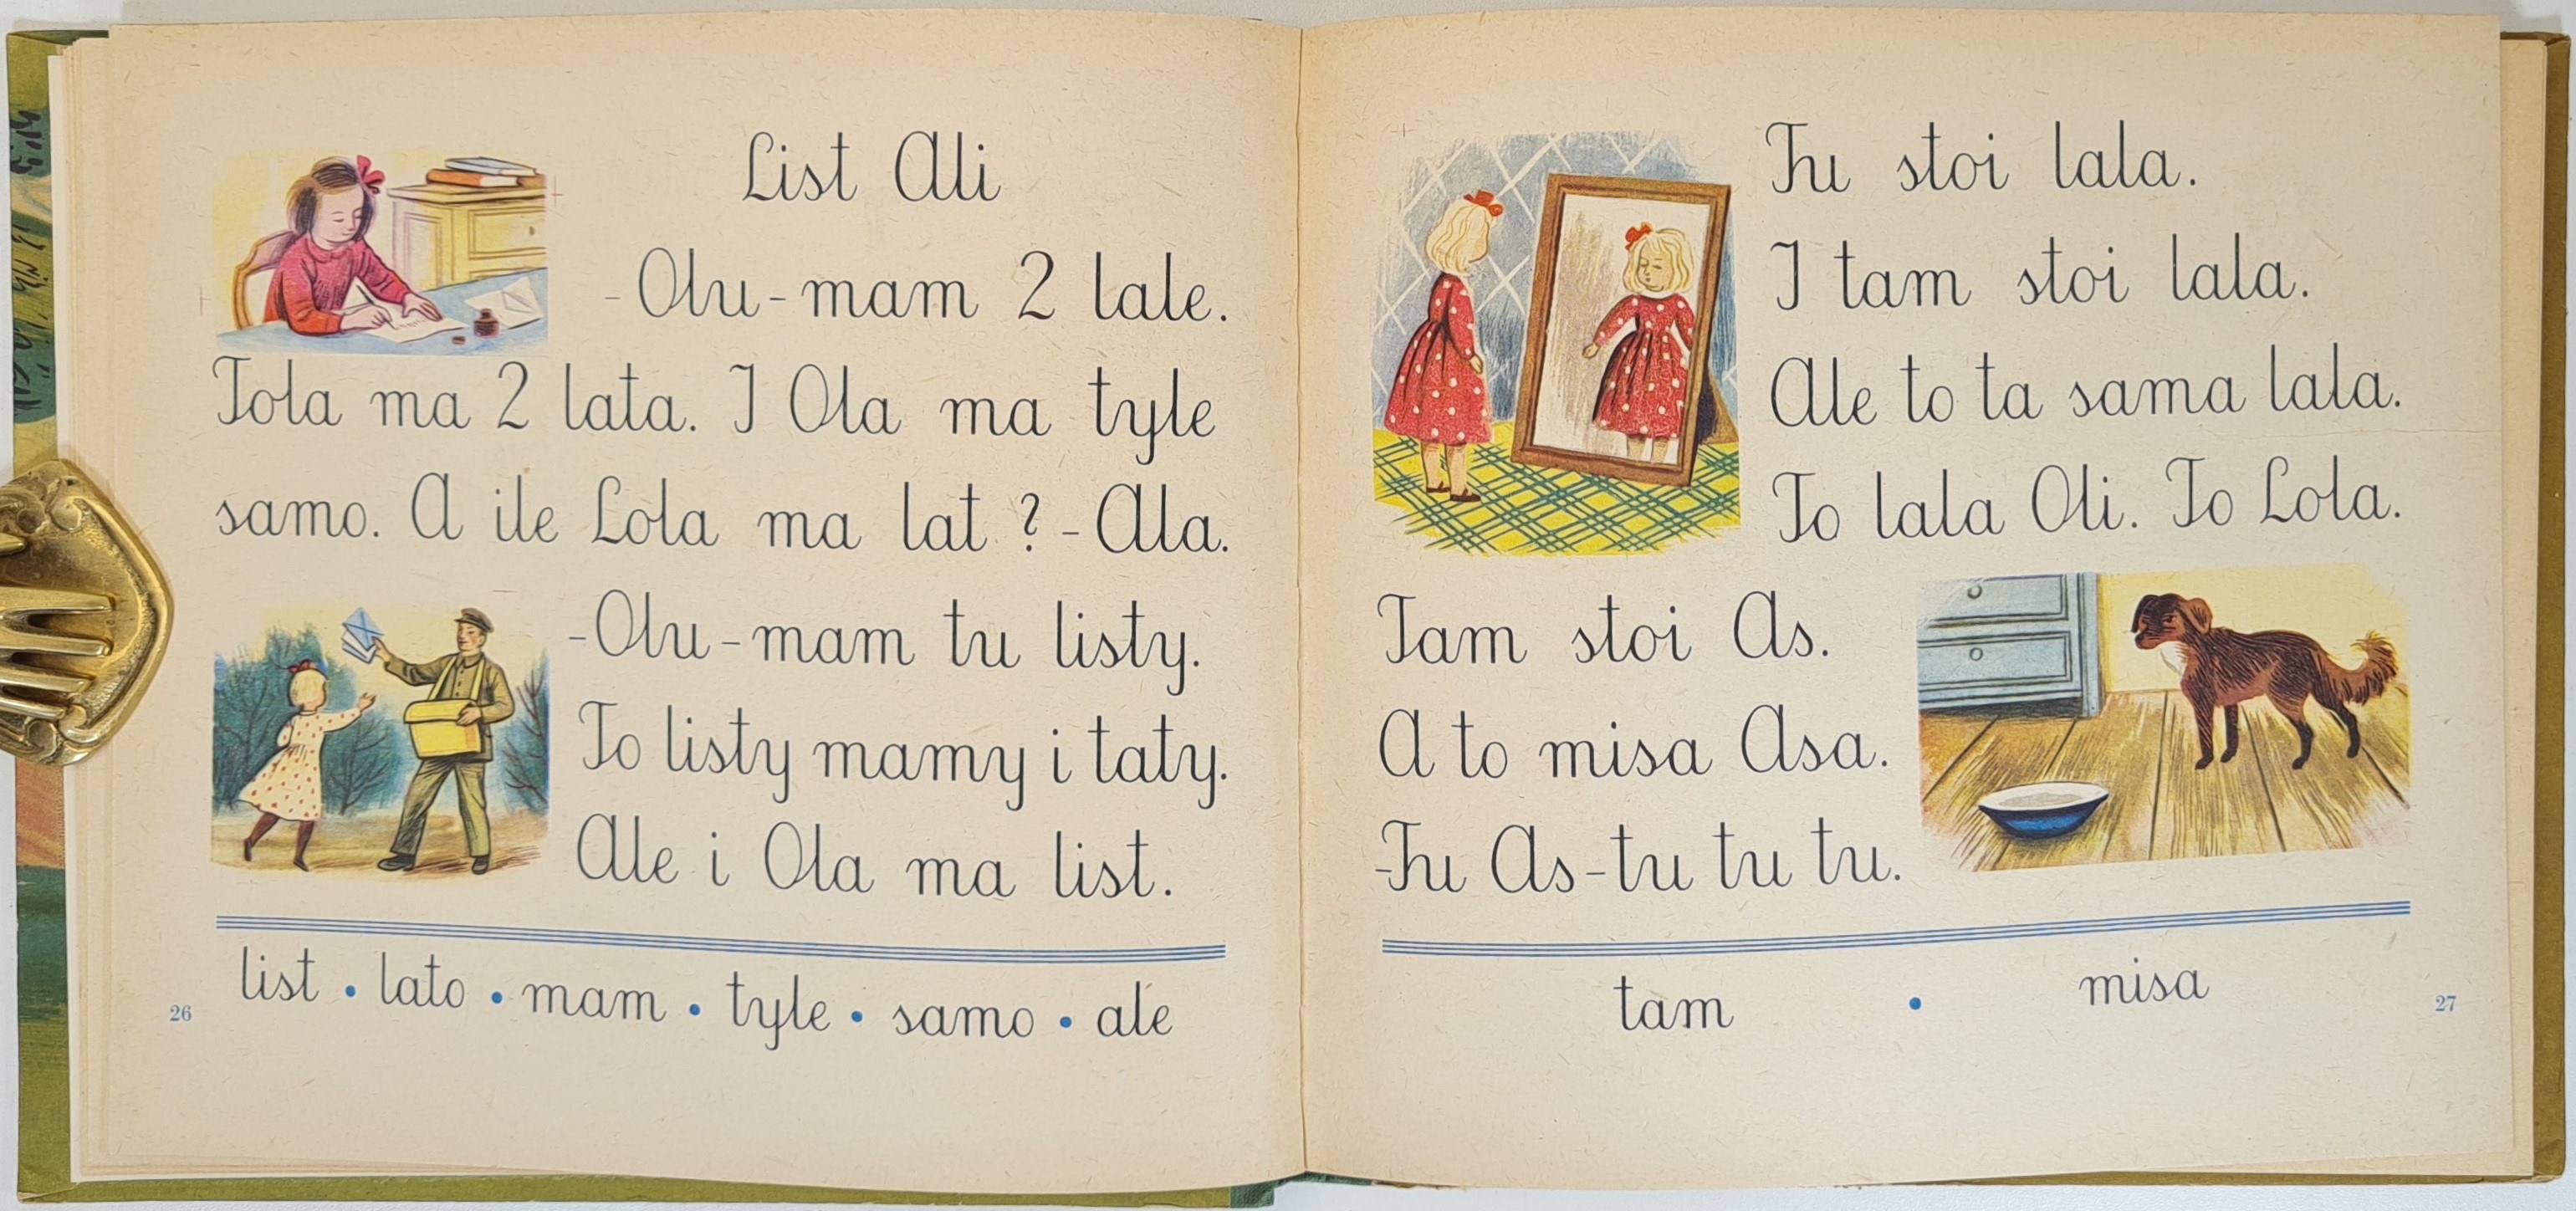 List Ali
- Olu - mam 2 lale.
Tola ma 2 lata. I Ola ma tyle
samo. A ile Lola ma lat ? - Ala.
- Olu - mam tu listy.
To listy mamy i taty.
Ale i Ola ma list.
list • lato • mam • tyle • samo • ale
26
Tu stoi lala.
I tam stoi lala.
Ale to ta sama lala.
To lala Oli. To Lola.
Tam stoi As.
A to misa Asa.
- Tu As - tu tu tu.
tam • misa
27